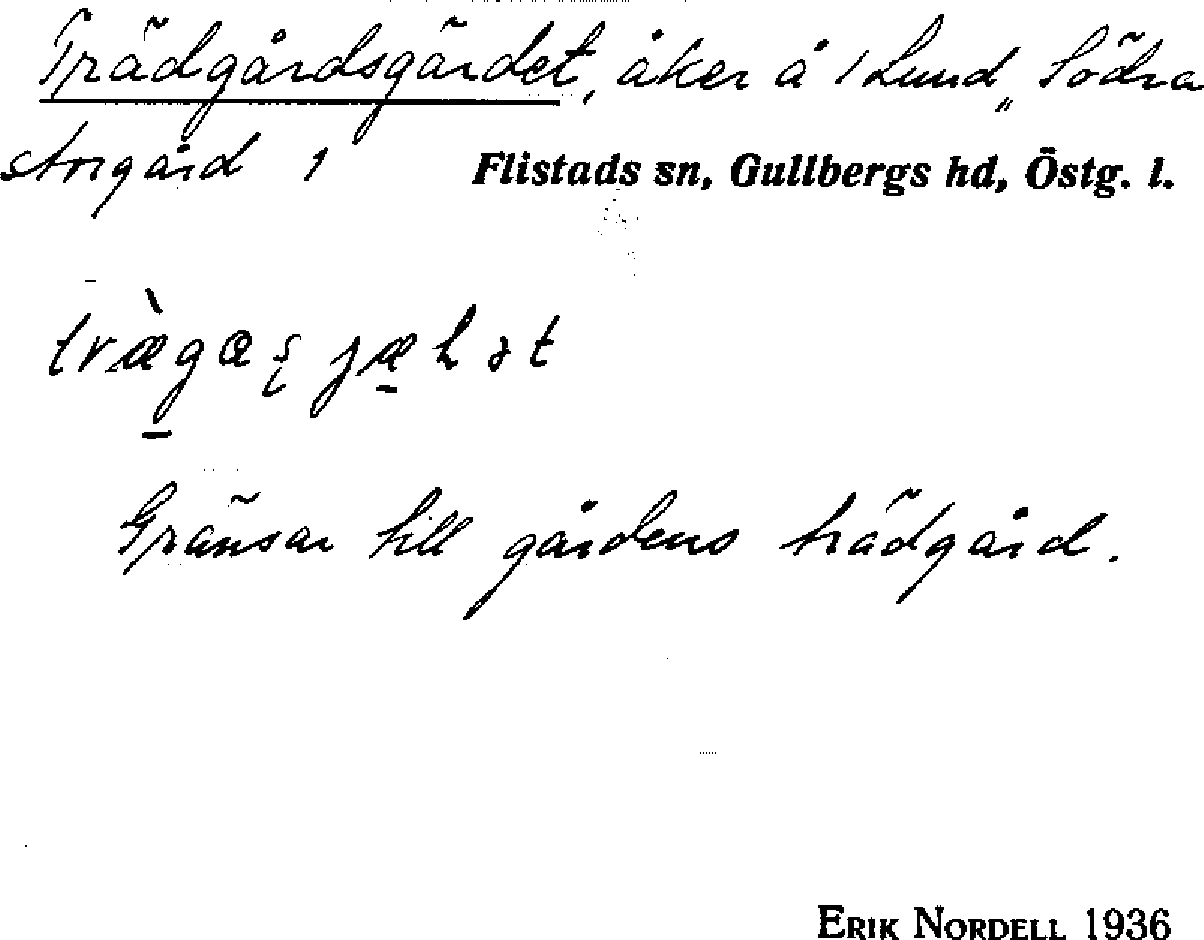 Trädgårdsgärdet, åker å 1 Lund „ Södra
storgård 1 Flistads sn, Gullbergs hd, Östg. l.
Gränsar till gårdens trädgård.
ERIK NORDELL 1936